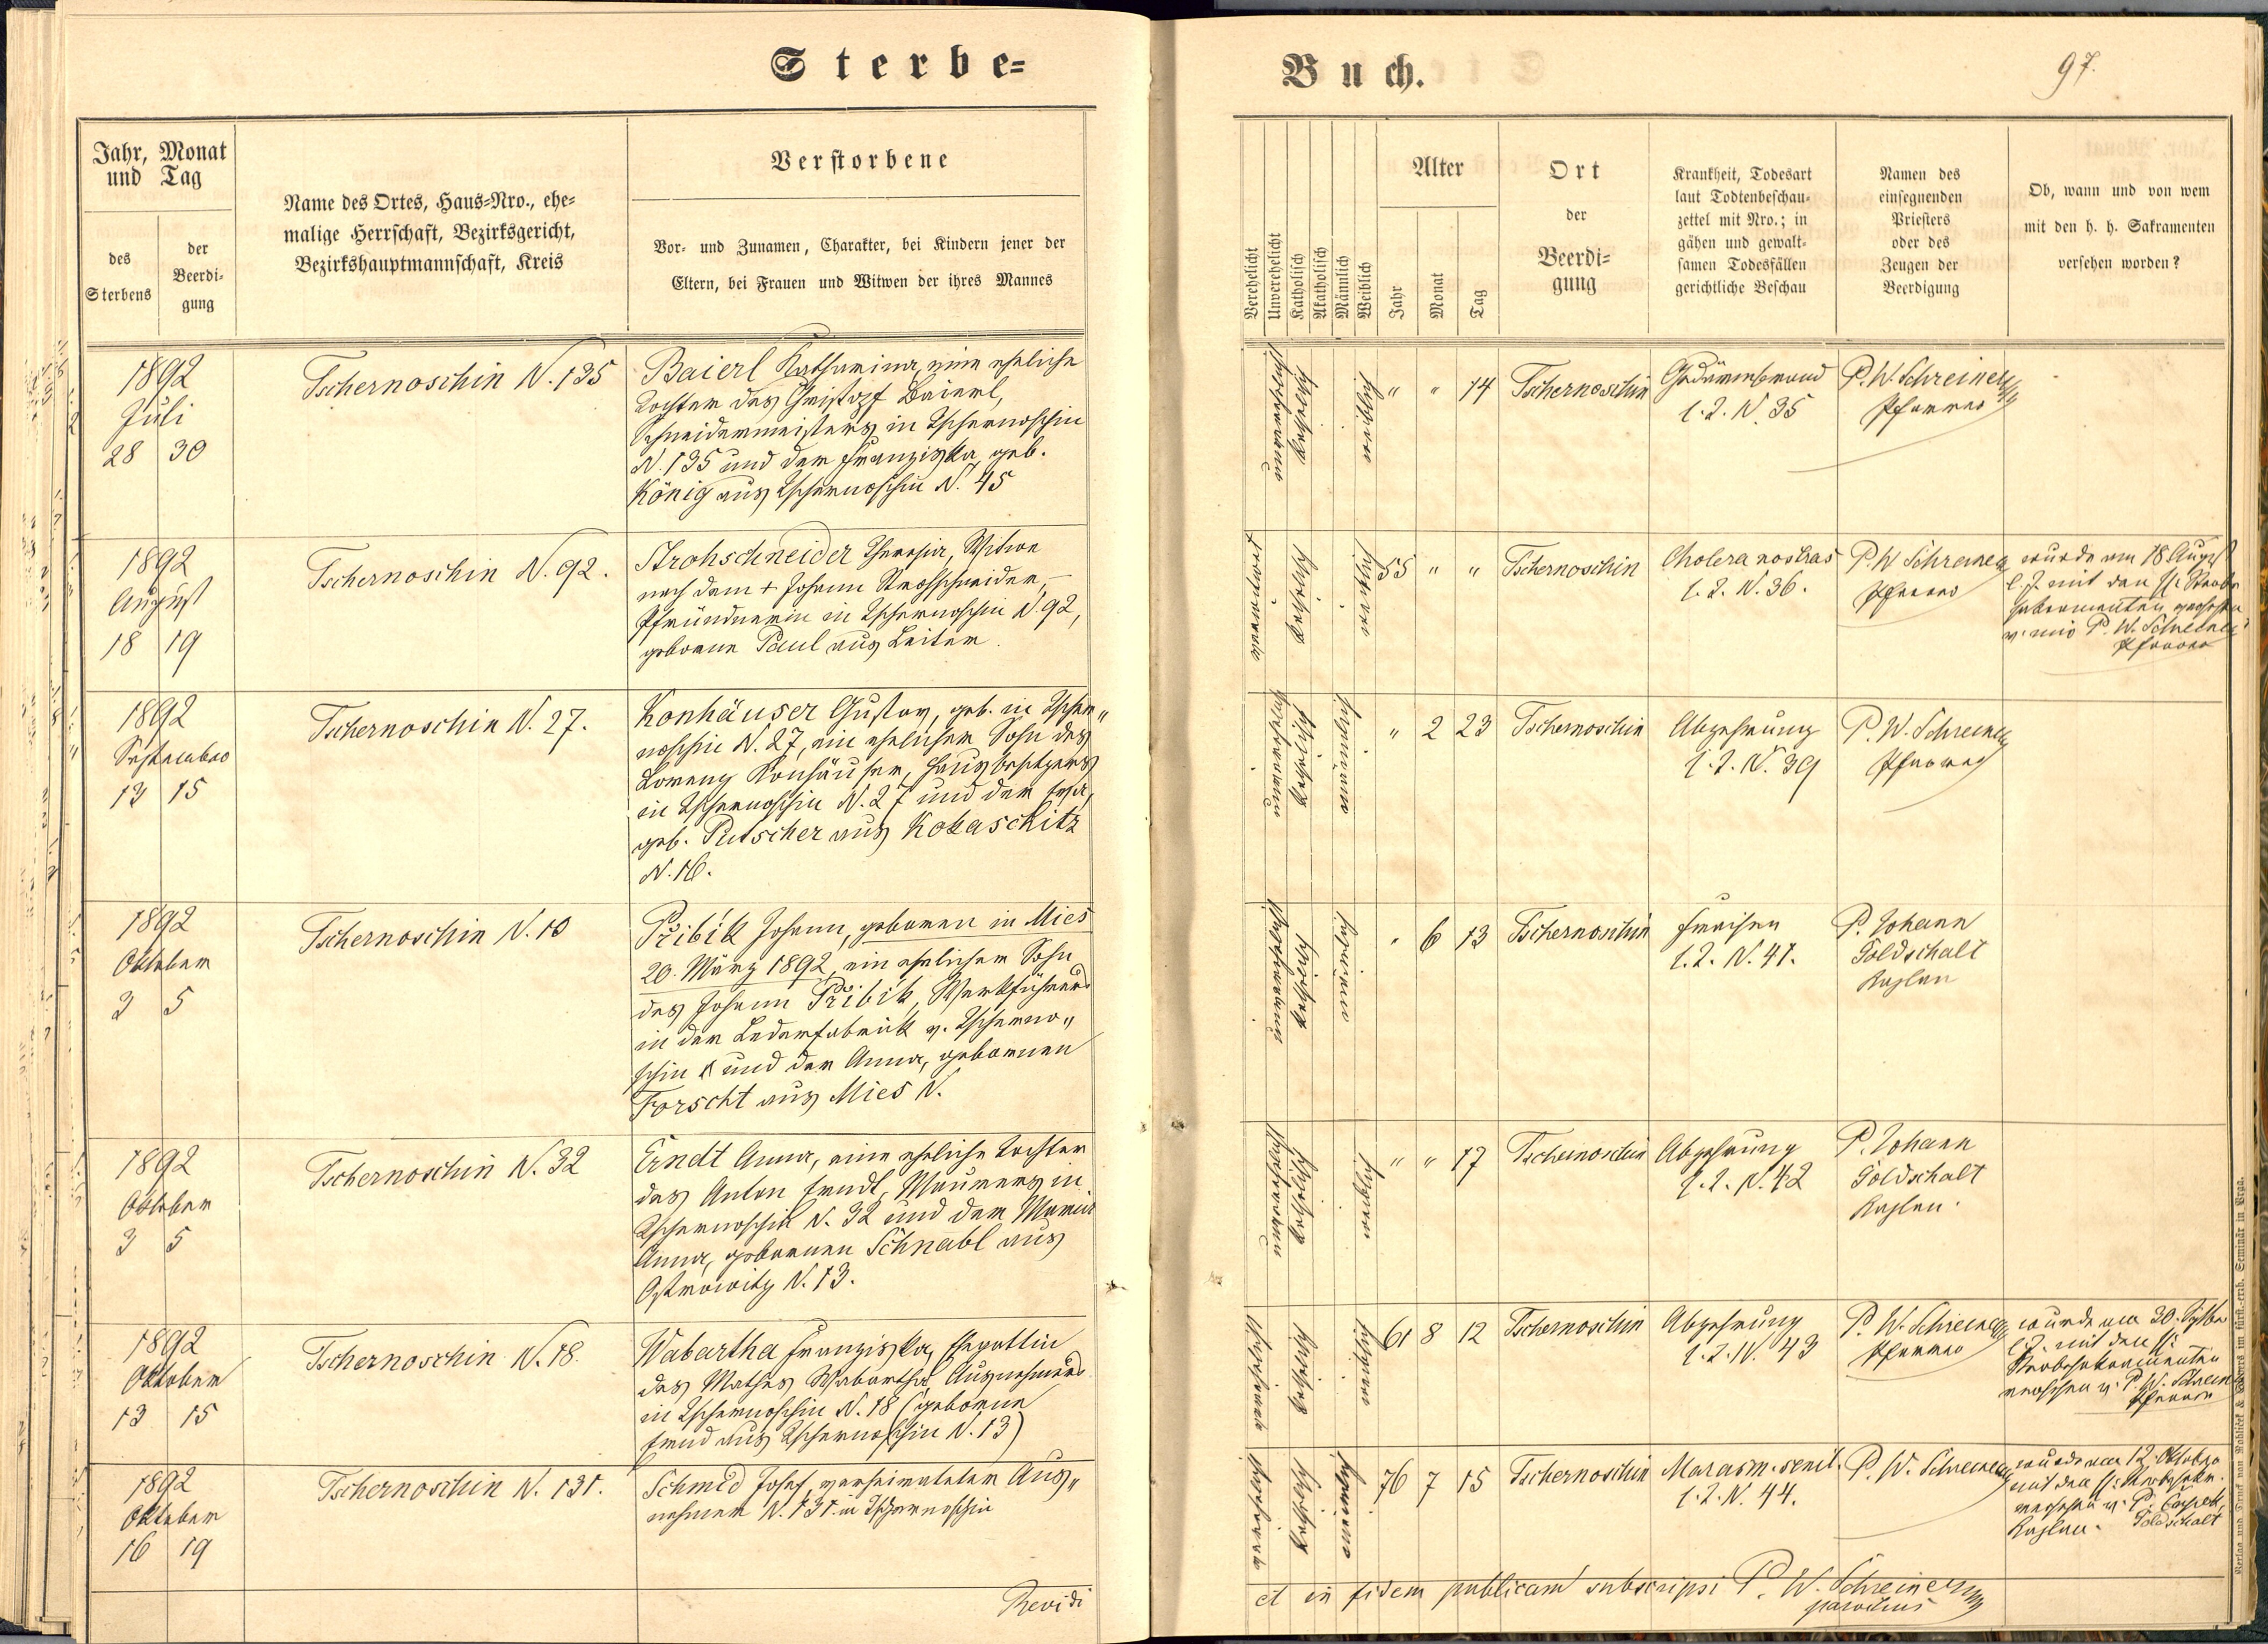 Sterbe=
Buch.
97.
Jahr, Monat
und Tag
des
Sterbens
der
Beerdi-
gung
Name des Ortes, Haus=Nro., ehe=
malige Herrschaft, Bezirksgericht,
Bezirkshauptmannschaft, Kreis
Verstorbene
Vor- und Zunamen, Charakter, bei Kindern jener der
Eltern, bei Frauen und Witwen der ihres Mannes
Verehelicht
Unverehelicht
Katholisch
Akatholisch
Männlich
Weiblich
Alter
Jahr
Monat
Tag
Ort
der
Beerdi=
gung
Krankheit, Todesart
laut Todtenbeschau-
zettel mit Nro.; in
gähen und gewalt-
samen Todesfällen
gerichtliche Beschau
Namen des
einsegnenden
Priesters
oder des
Zeugen der
Beerdigung
Ob, wann und von wem
mit den h. h. Sakramenten
versehen worden?
1892
Juli
28 30
Tschernoschin N. 135
Baierl Katharina, eine eheliche
Tochter des Christof Baierl,
Schneidermeisters in Tschernoschin
N. 135 und der Franziska geb.
König aus Tschernoschin N. 45
unverehelicht
katholisch
weiblich
" " 14
Tschernoschin
Gedärmbrand
l. Z. N. 35
P. W. Schreiner
Pfarrer
1892
August
18 19
Tschernoschin N. 92.
Strohschneider Theresia, Witwe
nach dem + Johann Strohschneider,
Pfründnerin in Tschernoschin N. 92,
geborne Paul aus Leiter.
verwitwet
katholisch
weiblich
55 " "
Tschernoschin
Cholera nostras
l. Z. N. 36.
P. W. Schreiner
Pfarrer
wurde am 18. August
l. J. mit den hl. Sterbe
sakramenten versehen
v. mir P. W. Schreiner
Pfarrer
1892
September
13 15
Tschernoschin N. 27.
Konhäuser Gustav, geb. in Tscher"
noschin N. 27, ein ehelicher Sohn des
Lorenz Konhäuser, Hausbesitzers
in Tschernoschin N. 27 und der
geb. Putscher aus Kokaschitz
N. 16.
unverehelicht
katholisch
männlich
" 2 23
Tschernoschin
Abzehrung
l. Z. N. 39
P. W. Schreiner
Pfarrer
1892
Oktober
3 5
Tschernoschin N. 10
Přibik Johann, geboren in Mies
20. März 1892, ein ehelicher Sohn
des Johann Přibik, Werkführers
in der Lederfabrik v. Tscherno"
schin und der Anna, gebornen
Forscht aus Mies N.
unverehelicht
katholisch
männlich
" 6 13
Tschernoschin
Fraisen
l. Z. N. 41.
P. Johann
Goldschalt
Kaplan
1892
Oktober
3 5
Tschernoschin N. 32
Erndt Anna, eine eheliche Tochter
des Anton Erndt, Maurers in
Tschernoschin N. 32 und der Maria
Anna, gebornen Schnabl aus
Ostrowitz N. 13.
unverehelicht
katholisch
weiblich
" " 17
Tschernoschin
Abzehrung
l. Z. N. 42
P. Johann
Goldschalt
Kaplan.
1892
Oktober
13 15
Tschernoschin N. 18.
Wabartha Franziska, Ehegattin
des Mathes Wabartha, Ausnehmers
in Tschernoschin N. 18 (geborne
aus Tschernoschin N. 13)
verehelicht
katholisch
weiblich
61 8 12
Tschernoschin
Abzehrung
l. Z. N. 43
P. W. Schreiner
Pfarrer
wurde am 30. Sptber
l. J. mit den hl.
Sterbesakramenten
versehen v. P. W. Schrein
Pfarrer
1892
Oktober
16 19
Tschernoschin N. 131.
Schmid Josef, verheirateter Aus"
nehmer N. 131 in Tschernoschin
verehelicht
katholisch
männlich
76 7 15
Tschernoschin
Marasm. senil.
l. Z. N. 44.
P. W. Schreiner
wurde am 12. Oktober
mit den hl. Sterbesakr.
versehen v. P.
Kaplan. Goldschalt
Revidi
et in fidem publicam subscripsi P. W. Schreiner
parochus